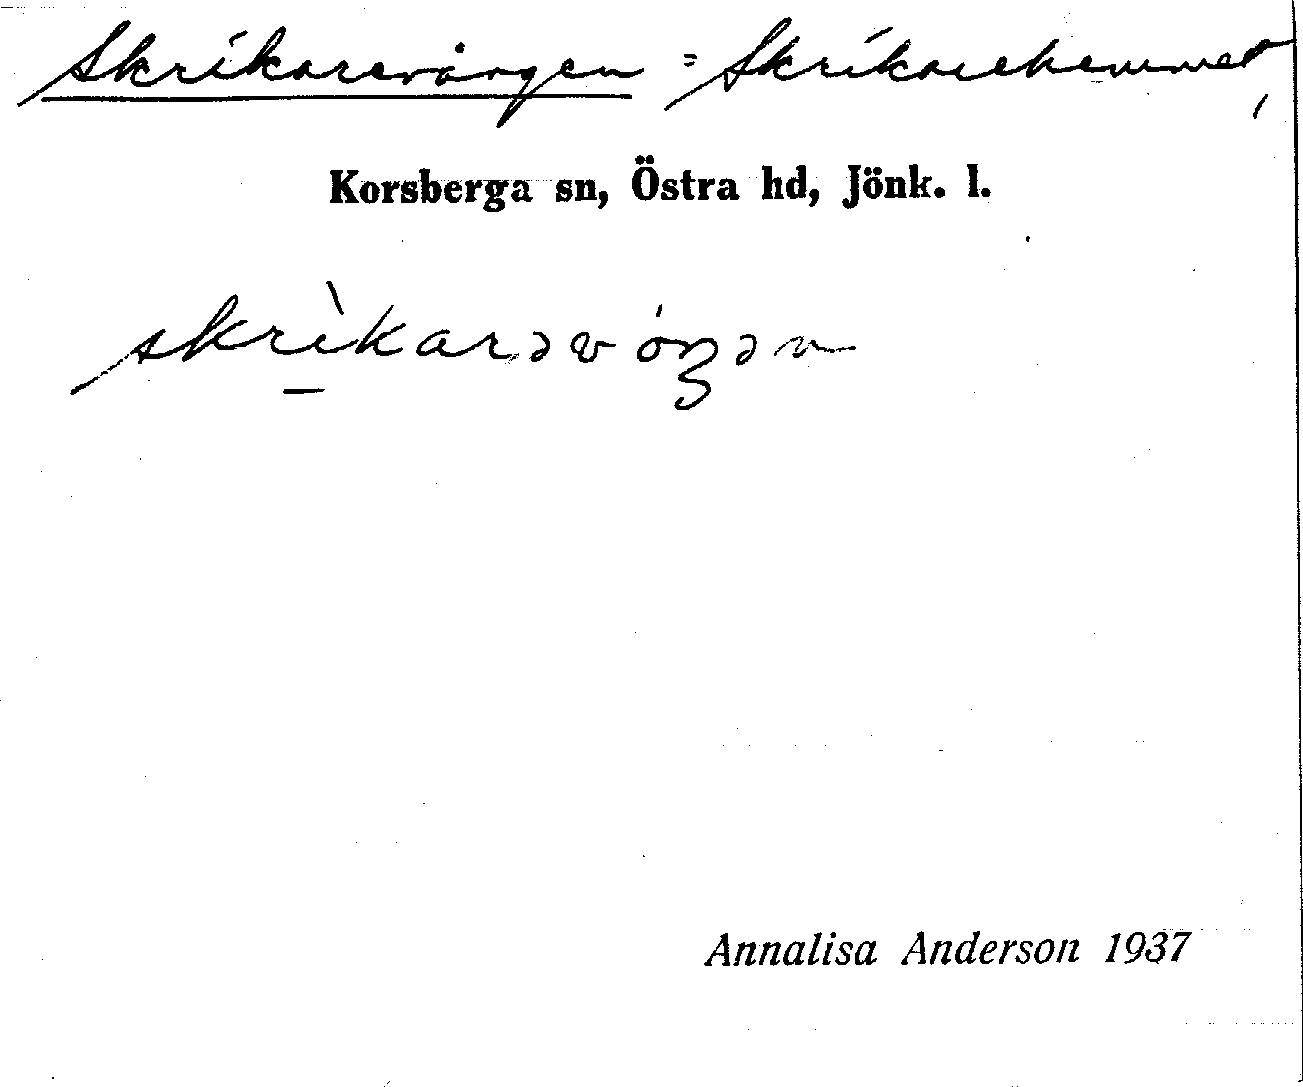 Skrikarevången = Skrikarehemmet,
Korsberga sn, Östra hd, Jönk. l.
skrìkarəvóŋən
Annalisa Anderson 1937